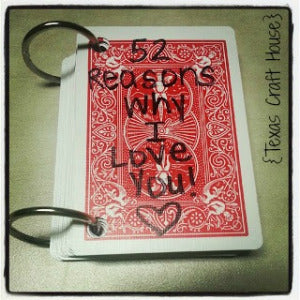 52
Reasons
Why
I
Love
You!
{Texas Craft House}